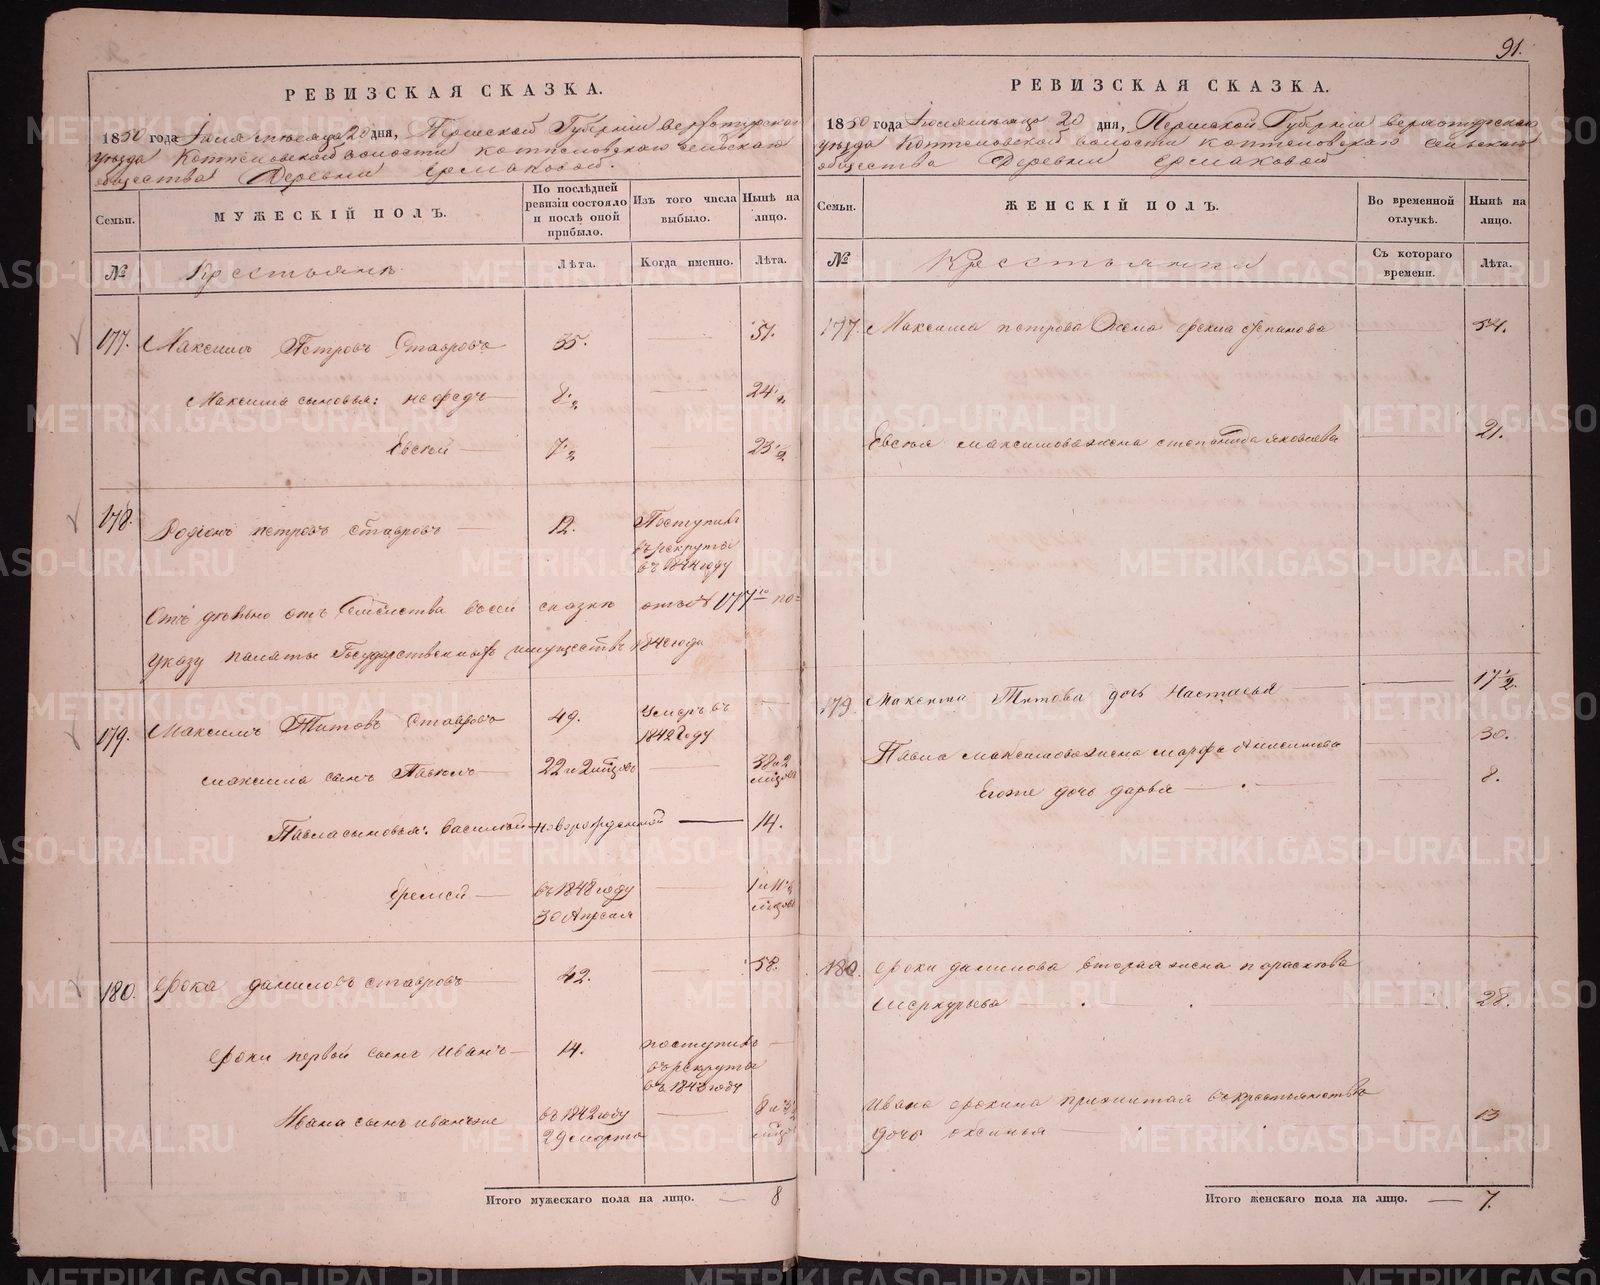 91.
РЕВИЗСКАЯ СКАЗКА.
1850 года Іюня месяца 20 дня, Пермской Губерніи верхотурскаго
уѣзда Коптеловской волости коптеловскаго сельскаго
общества Деревни ермаковой.
Семьи.
МУЖЕСКІЙ ПОЛЪ.
По послѣдней ревизіи состояло и послѣ оной прибыло.
Изъ того числа выбыло.
Нынѣ на лицо.
№
Крестьянъ
Лѣта.
Когда именно.
Лѣта.
177. Максимъ Петровъ Ставровъ 35. 51.
Максима сыновья: нефедъ 8 1/2 24 1/2
Евсѣй 7 1/2 23 1/2
178. Родіонъ петровъ ставровъ 12. Поступилъ
въ рекруты
въ 1844 году
Отдѣльно отъ семейства всей сказки отъ № 177го по
указу палаты Государственныхъ имуществъ года
179. Максимъ Титовъ Ставровъ 49. Умеръ въ
1842 году
максима сынъ Павелъ 22 и 2 мѣсяц 38 и 2
мѣсяц
Павла сыновья: василий новорожденной 14.
Еремей въ 1848 году 1 и 11 1/2
30 Апреля мѣсяц
180. ерока даниловъ ставровъ 42. 58.
ероки первой сынъ иванъ 14. поступилъ
въ рекруты
въ 1843 году
Ивана сынъ иванъ же въ 1842 году 8 и 3 1/2
29 марта мѣсяц
Итого мужескаго пола на лицо. 8
РЕВИЗСКАЯ СКАЗКА.
1850 года Іюня месяца 20 дня, Пермской Губерніи верхотурскаго
уѣзда Коптеловской волости коптеловскаго сельскаго
общества Деревни ермаковой
Семьи.
ЖЕНСКІЙ ПОЛЪ.
Во временной отлучкѣ.
Нынѣ на лицо.
№
Крестьянки
Съ котораго времени.
Лѣта.
177. Максима петрова жена степанова 54.
Евсѣя максимова жена степанида яковлева 21.
179 Максима Титова дочь Настасья 17 1/2.
Павла максимова жена марфа Анисимова 30.
Егоже дочь дарья 8.
180. ероки данилова вторая жена парасковья
меркурьева 28.
ивана ерохина прижитая въ крестьянстве
дочь оксинья 13
Итого женскаго пола на лицо. 7.
METRIKI.GASO-URAL.RU